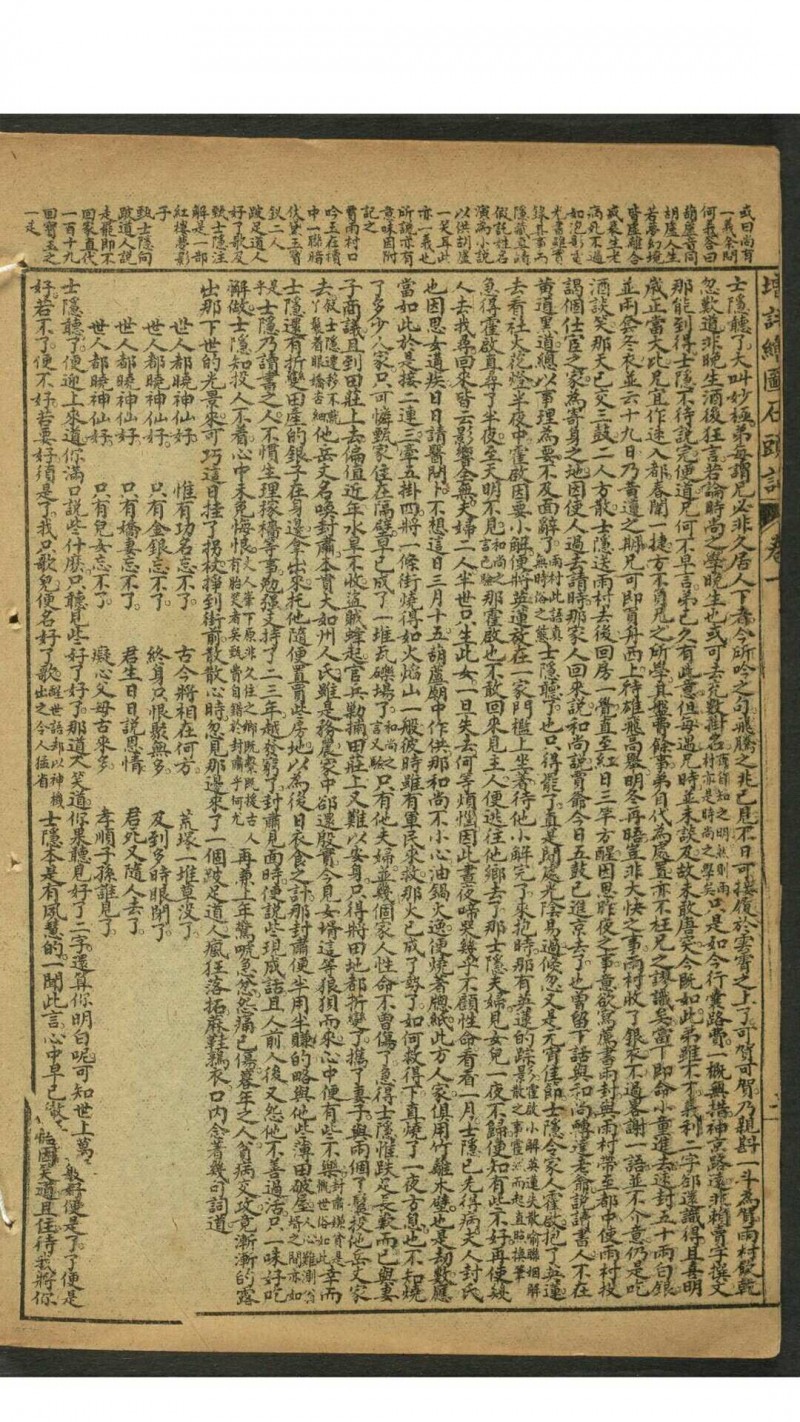 或曰尚有
一義余問
何義答曰
葫蘆者同
胡盧人生
若夢幻境
皆虛離合
悲歡生老
病死不過
如泡影電
光書雖實
錄其事而
隱
姓名
演為小說
以供胡盧
一笑耳此
亦一義也
所說亦有
意味因附
記之
賈雨村口
吟玉在櫝
中一聯暗
伏黛玉寶
釵二人
跛足道人
好了歌及
甄士隱注
解是一部
紅樓夢影
子
甄士隱向
跛道人說
走罷即不
回家直代
一百十九
回寶玉之
一走
增評繪圖石頭記 卷一 二
士隱聽了大叫妙極弟每謂兄必非久居人下者今所吟之句飛騰之兆已見不日可接履於雲霄之上了可賀可賀乃親斟一斗為賀雨村飲乾
忽歎道非晚生酒後狂言若論時尚之學晚生也或可去充數掛名只是如今行囊路費一概無措神京路遠非賴賣字撰文
那能到得士隱不待說完便道兄何不早言弟已久有此意但每遇兄時並未談及故未敢唐突今既如此弟雖不才義利二字卻還識得且喜明
歲正當大比兄宜作速入都春闈一捷方不負兄之所學其盤費餘事弟自代為處置亦不枉兄之謬識矣當下即命小童進去速封五十兩白銀
並兩套冬衣並云十九日乃黃道之期兄可即買舟西上待雄飛高舉明冬再晤豈非大快之事雨村收了銀衣不過略謝一語並不介意仍是吃
酒談笑那天已交三鼓二人方散士隱送雨村去後回房一覺直至紅日三竿方醒因思昨夜之事意欲寫薦書兩封與雨村帶至都中使雨村投
謁個仕宦之家為寄身之地因使人過去請時那家人回來說和尚說賈爺今日五鼓已進京去了也曾留下話與和尚轉達老爺說讀書人不在
黃道黑道總以事理為要不及面辭了士隱聽了也只得罷了真是閒處光陰易過倏忽又是元宵佳節士隱令家人霍啟抱了英蓮
去看社火花燈半夜中霍啟因要小解便將英蓮放在一家門檻上坐著待他小解完了來抱時那有英蓮的踪影
急得霍啟直尋了半夜至天明不見那霍啟也不敢回來見主人便逃往他鄉去了那士隱夫婦見女兒一夜不歸便知有些不好再使幾
人去找尋回來皆云影響全無夫婦二人半世只生此女一旦失去何等煩惱因此晝夜啼哭幾乎不顧性命看看一月士隱已先得病夫人封氏
也因思女遘疾日日請醫問卜不想這日三月十五葫蘆廟中作供那和尚不小心油鍋火逸便燒著窗紙此方人家俱用竹籬木壁也是劫數應
當如此於是接二連三牽五掛四將一條街燒得如火焰山一般彼時雖有軍民來救那火已成了勢了如何救得下直燒了一夜方息也不知燒
了多少人家只可憐甄家住在隔壁早已成了一堆瓦礫場了只有他夫婦並幾個家人性命不曾傷了急得士隱惟跌足長歎而已與妻
子商議且到田莊上去偏值近年水旱不收盜賊蜂起官兵勦捕田莊上又難以安身只得將田地都折變了攜了妻子與兩個丫鬟投他岳丈家
去他岳丈名喚封肅本貫大如州人氏雖是務農家中卻還殷實今見女壻這等狼狽而來心中便有些不樂幸而
士隱還有折變田產的銀子在身邊拿出來托他隨便置買些房地以為後日衣食之計那封肅便半用半賺的略與他些薄田破屋
士隱乃讀書之人不慣生理稼穡等事勉強支持了二三年越發窮了封肅見面時便說些現成話且人前人後又怨他不善過活只一味好吃
懶做士隱知投人不着心中未免悔恨再兼上年驚唬急忿怨痛已傷暮年之人貧病交攻竟漸漸的露
出那下世的光景來可巧這日拄了拐杖掙到街前散散心時忽見那邊來了一個跛足道人瘋狂落拓麻鞋鶉衣口內念著幾句詞道
世人都曉神仙好 惟有功名忘不了 古今將相在何方 荒塚一堆草沒了
世人都曉神仙好 只有金銀忘不了 終身只恨聚無多 及到多時眼閉了
世人都曉神仙好 只有嬌妻忘不了 君生日日說恩情 君死又隨人去了
世人都曉神仙好 只有兒女忘不了 癡心父母古來多 孝順子孫誰見了
士隱聽了便迎上來道你滿口說些什麼只聽見些好了好了那道人笑道你果聽見好了二字還算你明白呢可知世上萬般好便是了了便是
好若不了便不好若要好須是了我只歌兒便名好了歌士隱本是有夙慧的一聞此言心中早已徹 笑道且住待我將你